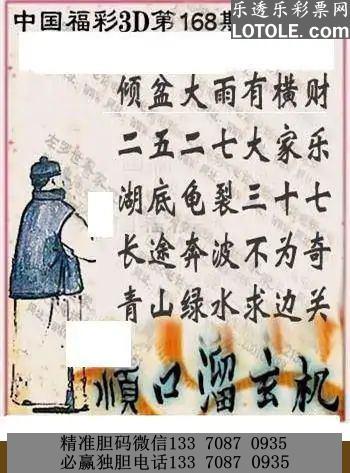 乐透乐彩票网
LOTOLE.COM
中国福彩3D第168期
倾盆大雨有横财
二五二七大家乐
湖底龟裂三十七
长途奔波不为奇
青山绿水求边关
順口溜玄机
精准胆码微信133 7087 0935
必赢独胆电话133 7087 0935